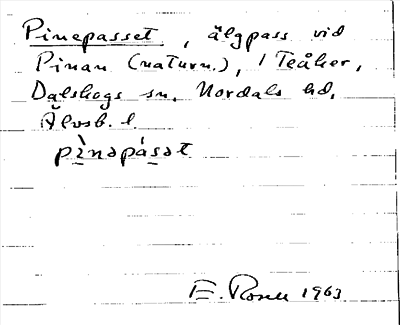 Pinepasset, älgpass vid
Pinan (naturn.), i Teåker,
Dalskogs sn. Nordals hd,
Älvsb. l.
pìnəpásət
E. Rosell 1963